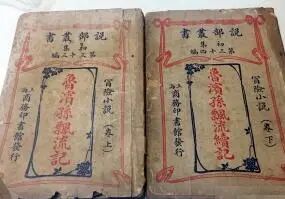 說部叢書
初集
第三十三編
冒險小說（卷上）
魯濱孫飄流記
上海商務印書館發行
說部叢書
初集
第三十四編
冒險小說（卷下）
魯濱孫飄流續記
上海商務印書館發行